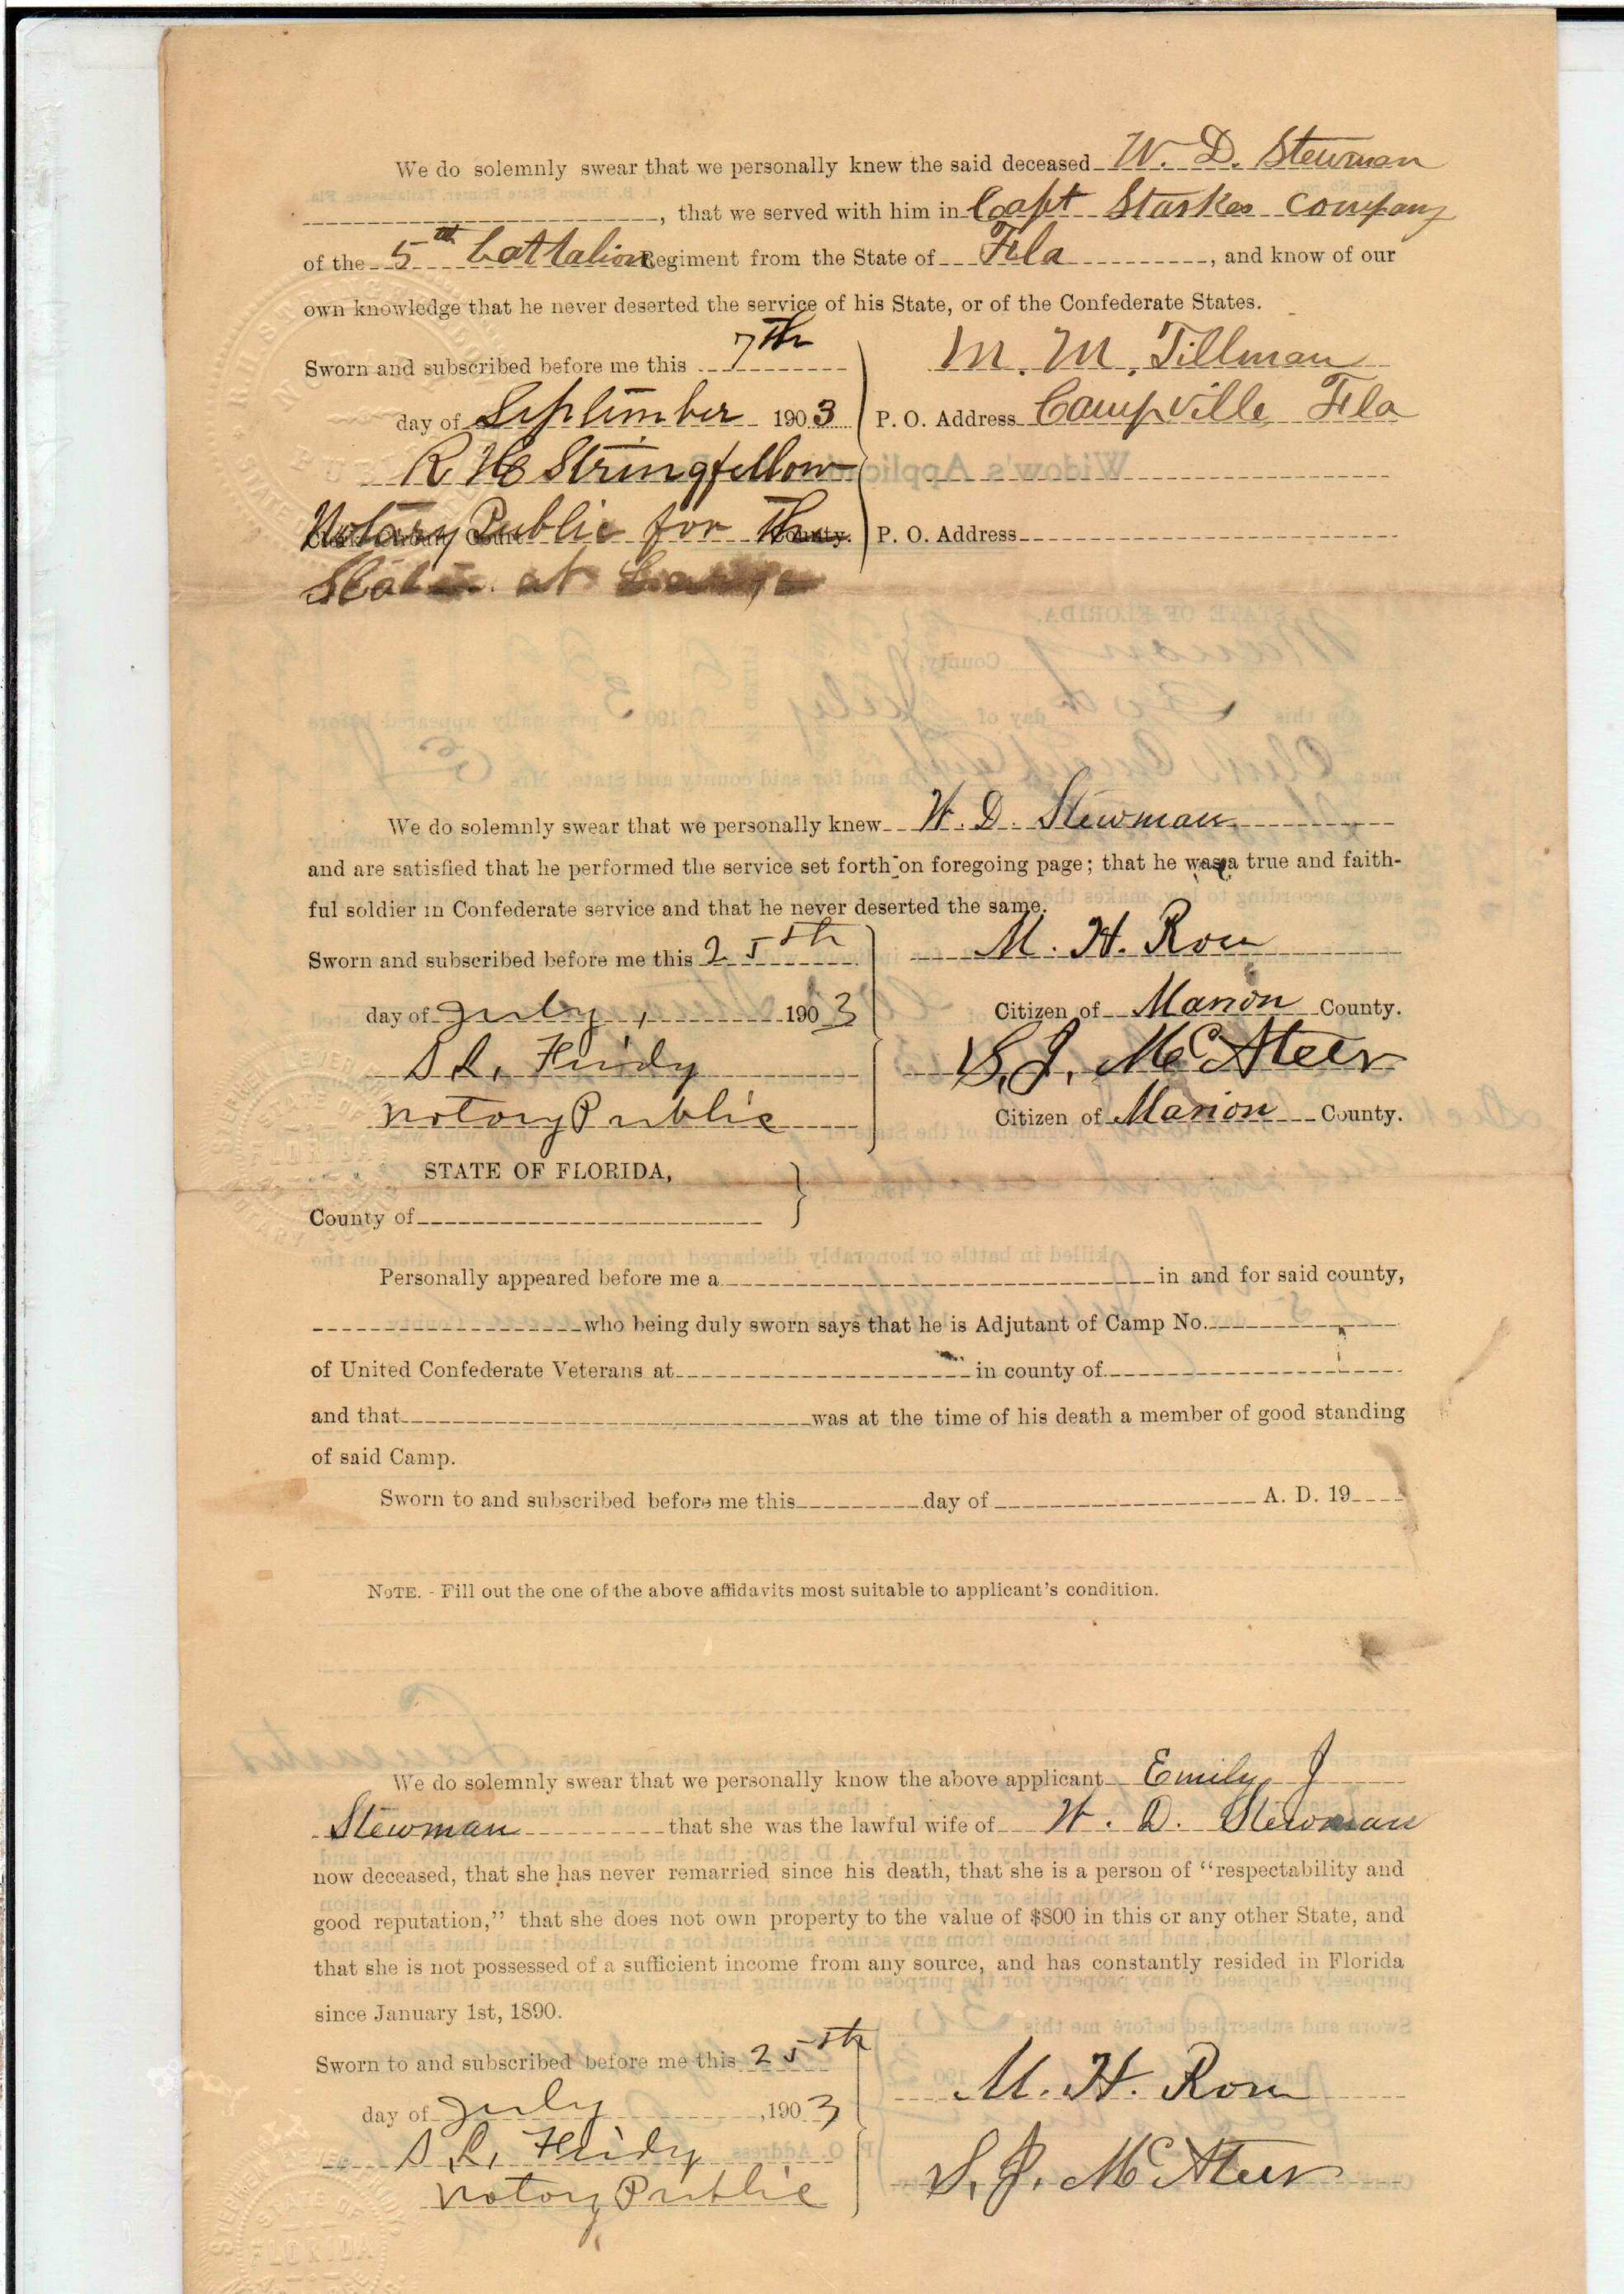 We do solemnly swear that we personally knew the said deceased W. D. Stewman
, that we served with him in Capt Starkes Company
of the 5th battalion Regiment from the State of Fla , and know of our
own knowledge that he never deserted the service of his State, or of the Confederate States.
Sworn and subscribed before me this 7th
day of September 1903
R H Stringfellow
Notary Public for The
State at Large
M. M. Tillman
P. O. Address Campville Fla
P. O. Address
We do solemnly swear that we personally knew W. D. Stewman
and are satisfied that he performed the service set forth on foregoing page; that he was a true and faith-
ful soldier in Confederate service and that he never deserted the same.
Sworn and subscribed before me this 25th
day of July, 1903
Notory Public
M. H. Rou
Citizen of Marion County.
S. J. McAteer
Citizen of Marion County.
STATE OF FLORIDA,
County of
Personally appeared before me a in and for said county,
who being duly sworn says that he is Adjutant of Camp No.
of United Confederate Veterans at in county of
and that was at the time of his death a member of good standing
of said Camp.
Sworn to and subscribed before me this day of A. D. 19
NOTE. - Fill out the one of the above affidavits most suitable to applicant's condition.
We do solemnly swear that we personally know the above applicant Emily J
Stewman that she was the lawful wife of W. D. Stewman
now deceased, that she has never remarried since his death, that she is a person of "respectability and
good reputation," that she does not own property to the value of $800 in this or any other State, and
that she is not possessed of a sufficient income from any source, and has constantly resided in Florida
since January 1st, 1890.
Sworn to and subscribed before me this 25th
day of July ,1903
Notory Public
M. H. Rou
S. J. McAteer